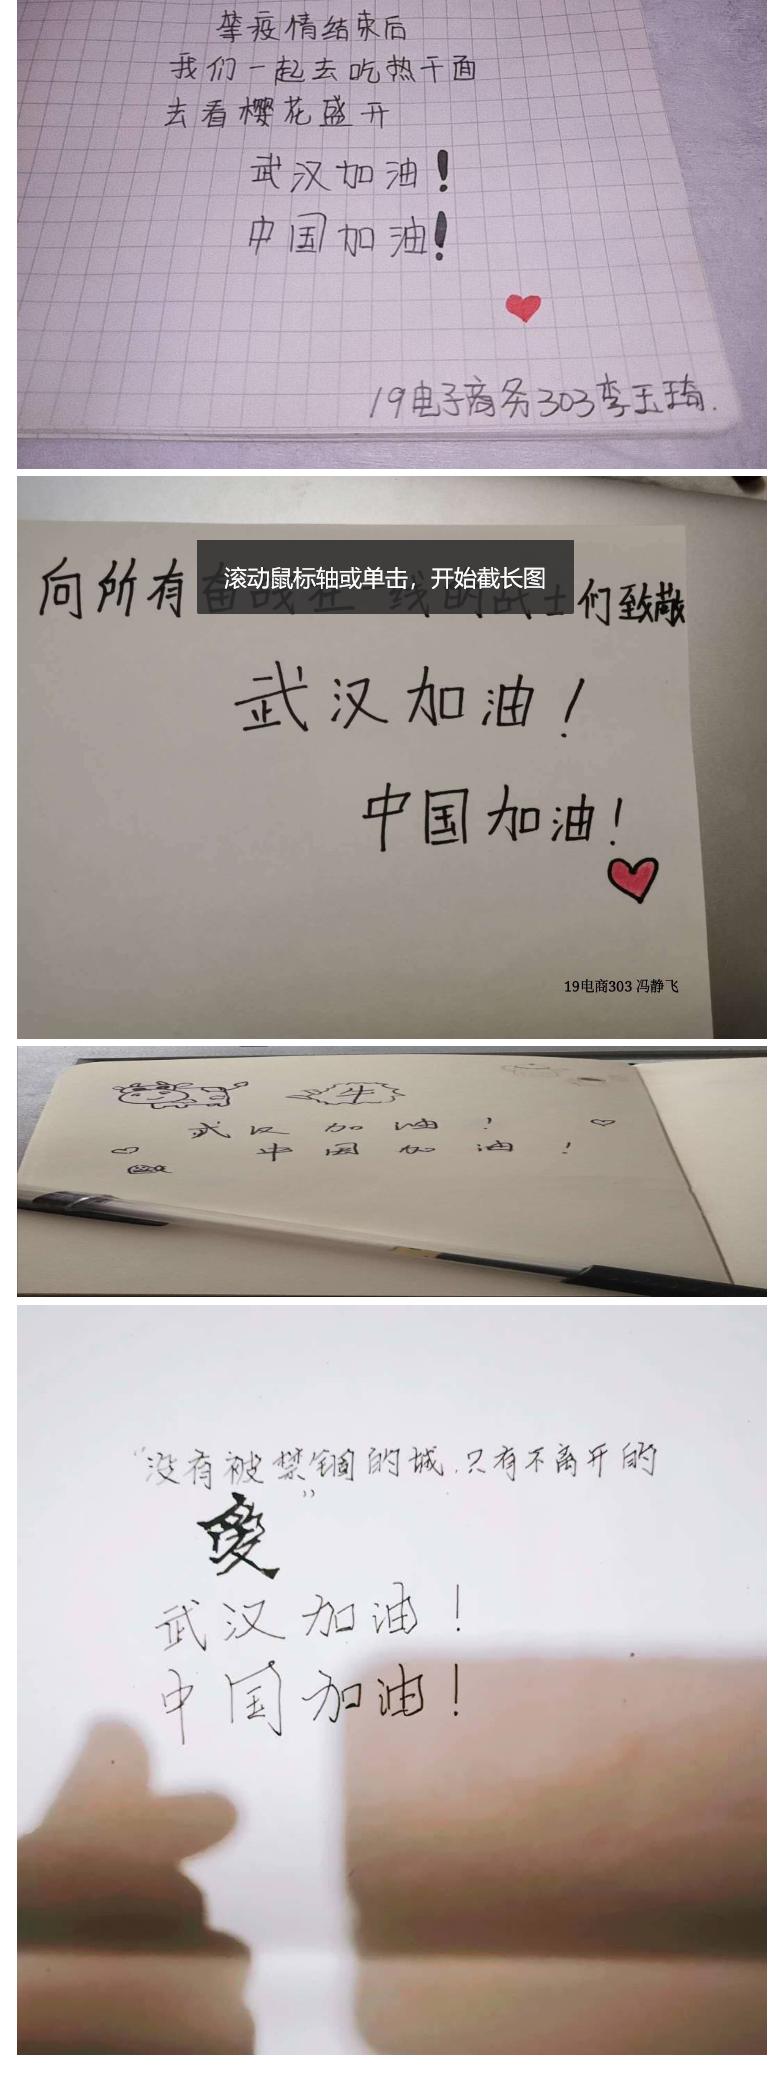 疫情结束后
我们一起去吃热干面
去看樱花盛开
武汉加油!
中国加油!
19电子商务303李玉琦.
滚动鼠标轴或单击，开始截长图
向所有奋战在一线的战士们致敬
武汉加油!
中国加油!
19电商303 冯静飞
牛
武汉加油!
中国加油!
“没有被禁锢的城,只有不离开的
爱”
武汉加油!
中国加油!